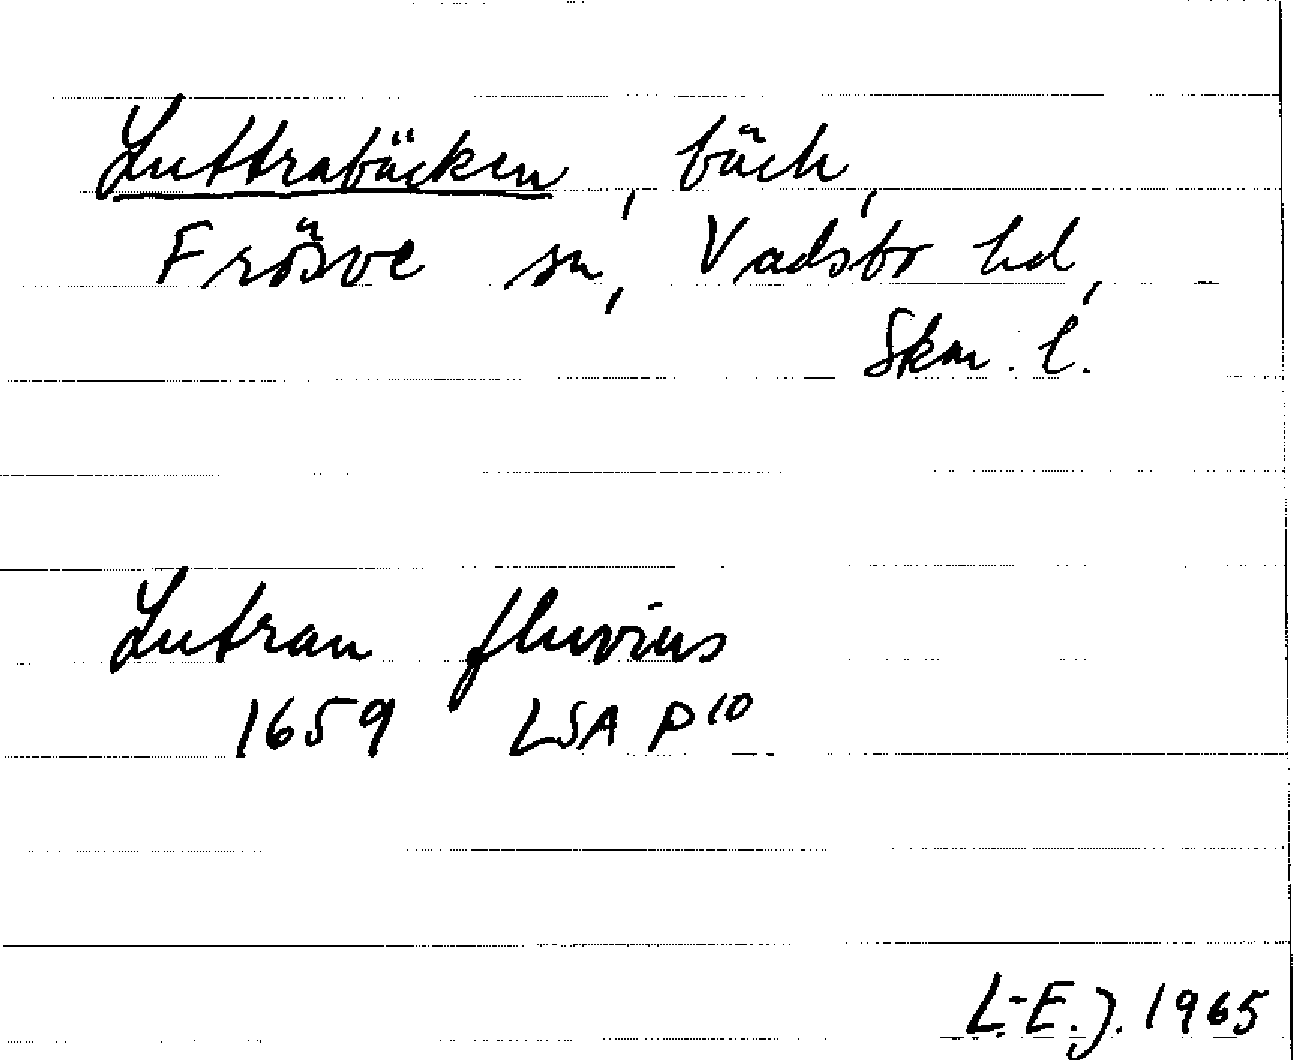 Luttrabäcken, bäck,
Frösve sn, Vadsbo hd,
Skar. l.
Lutran fluvius
1659 LSA P10
L-E.J. 1965